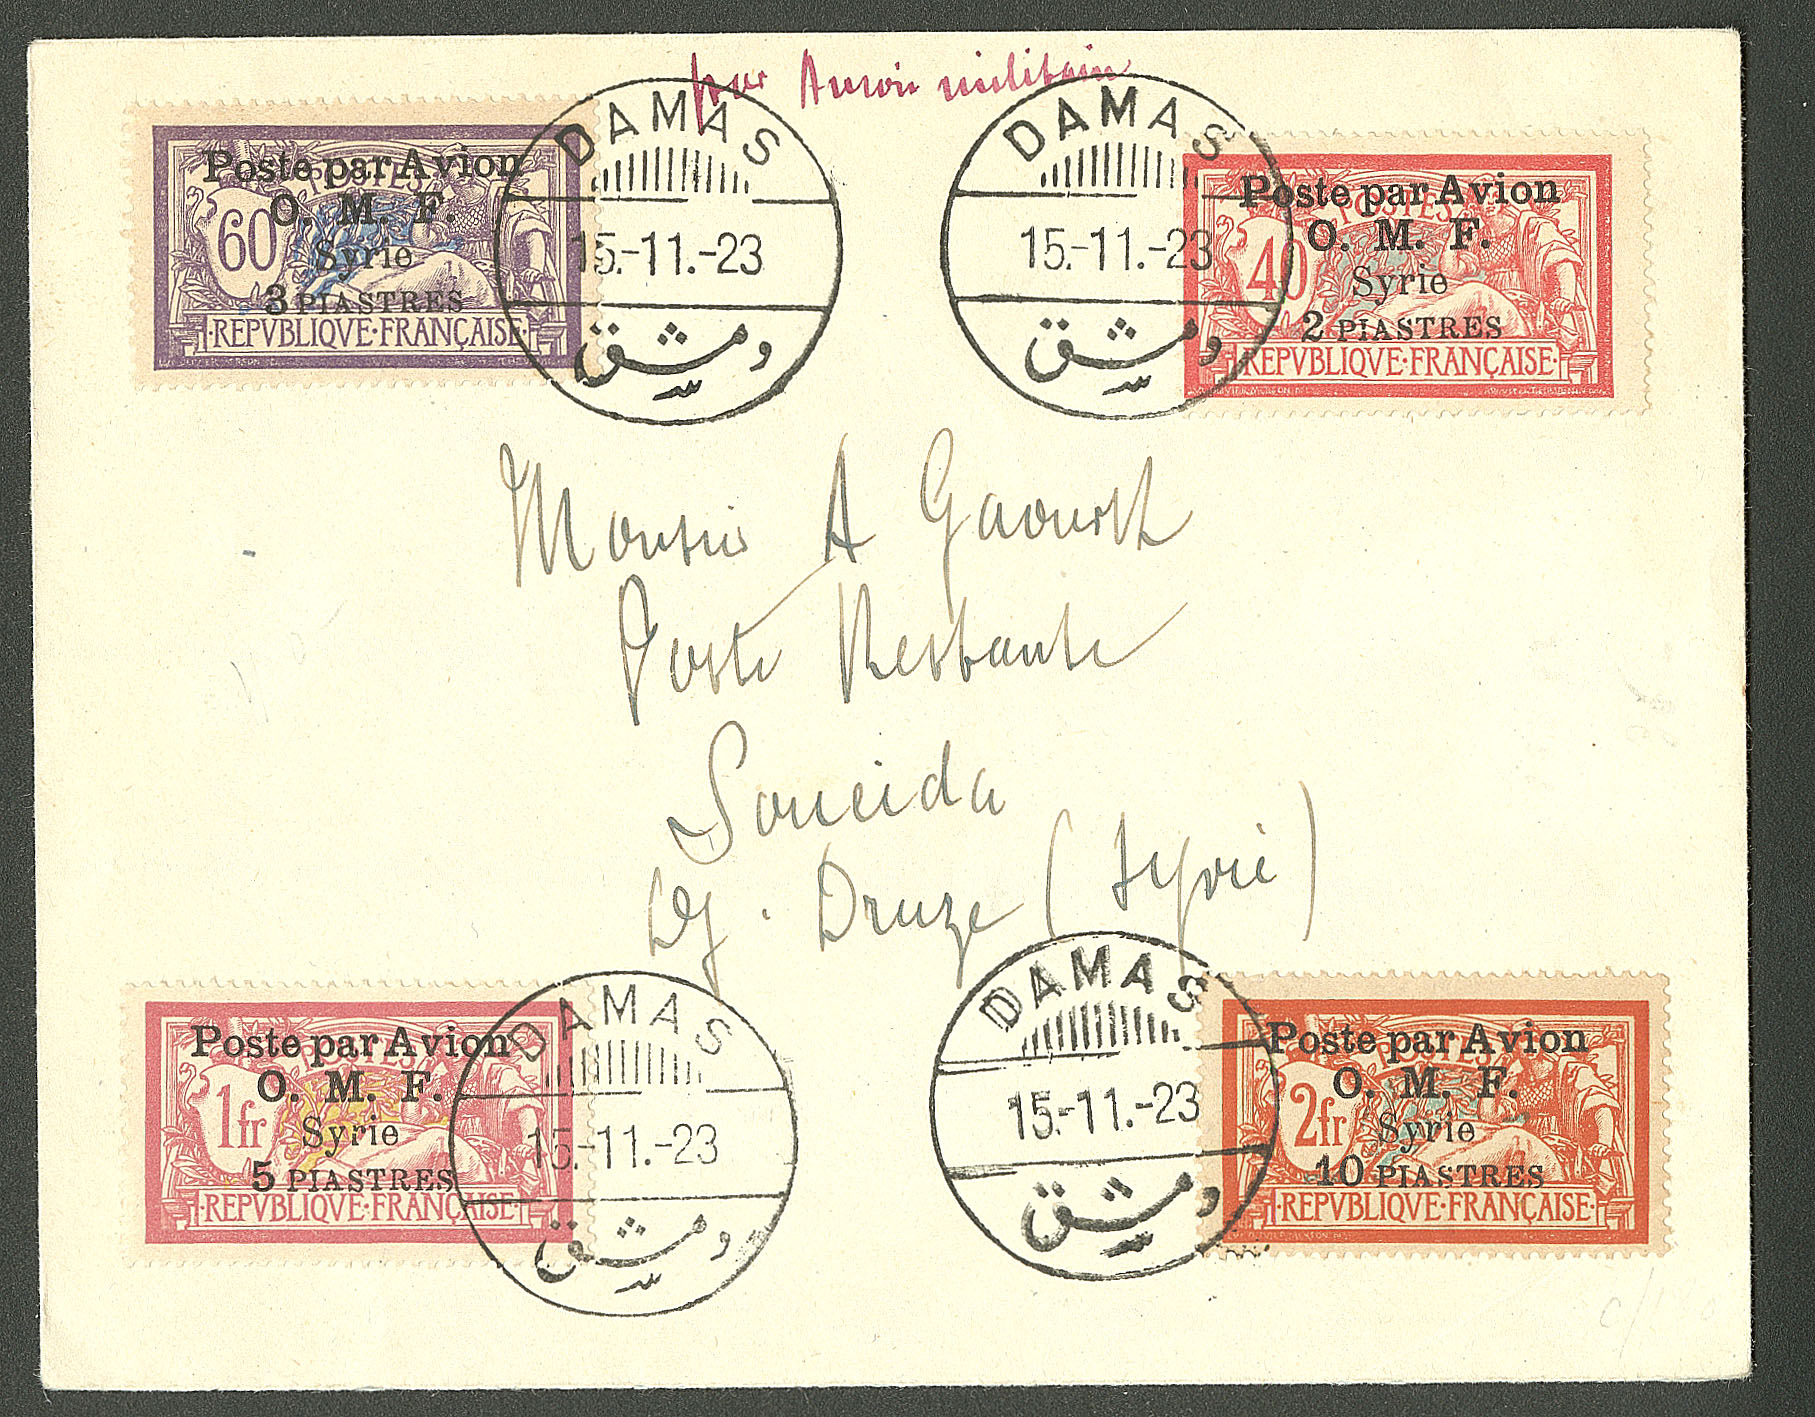 par Avion militaire
POSTES
60
Poste par Avion
O. M. F.
Syrie
3 PIASTRES
·REPVBLIQVE·FRANÇAISE·
DAMAS
15.-11.-23
دمشق
DAMAS
15.-11.-23
دمشق
POSTES
40
Poste par Avion
O. M. F.
Syrie
2 PIASTRES
·REPVBLIQVE·FRANÇAISE·
Monsieur A
Poste Restante
Soueida
Dj. Druze (Syrie)
1fr
Poste par Avion
O. M. F.
Syrie
5 PIASTRES
·REPVBLIQVE·FRANÇAISE·
DAMAS
15.-11.-23
دمشق
DAMAS
15.-11.-23
دمشق
2fr
Poste par Avion
O. M. F.
Syrie
10 PIASTRES
·REPVBLIQVE·FRANÇAISE·